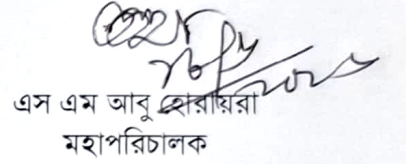 এস এম আবু হোরায়রা
মহাপরিচালক